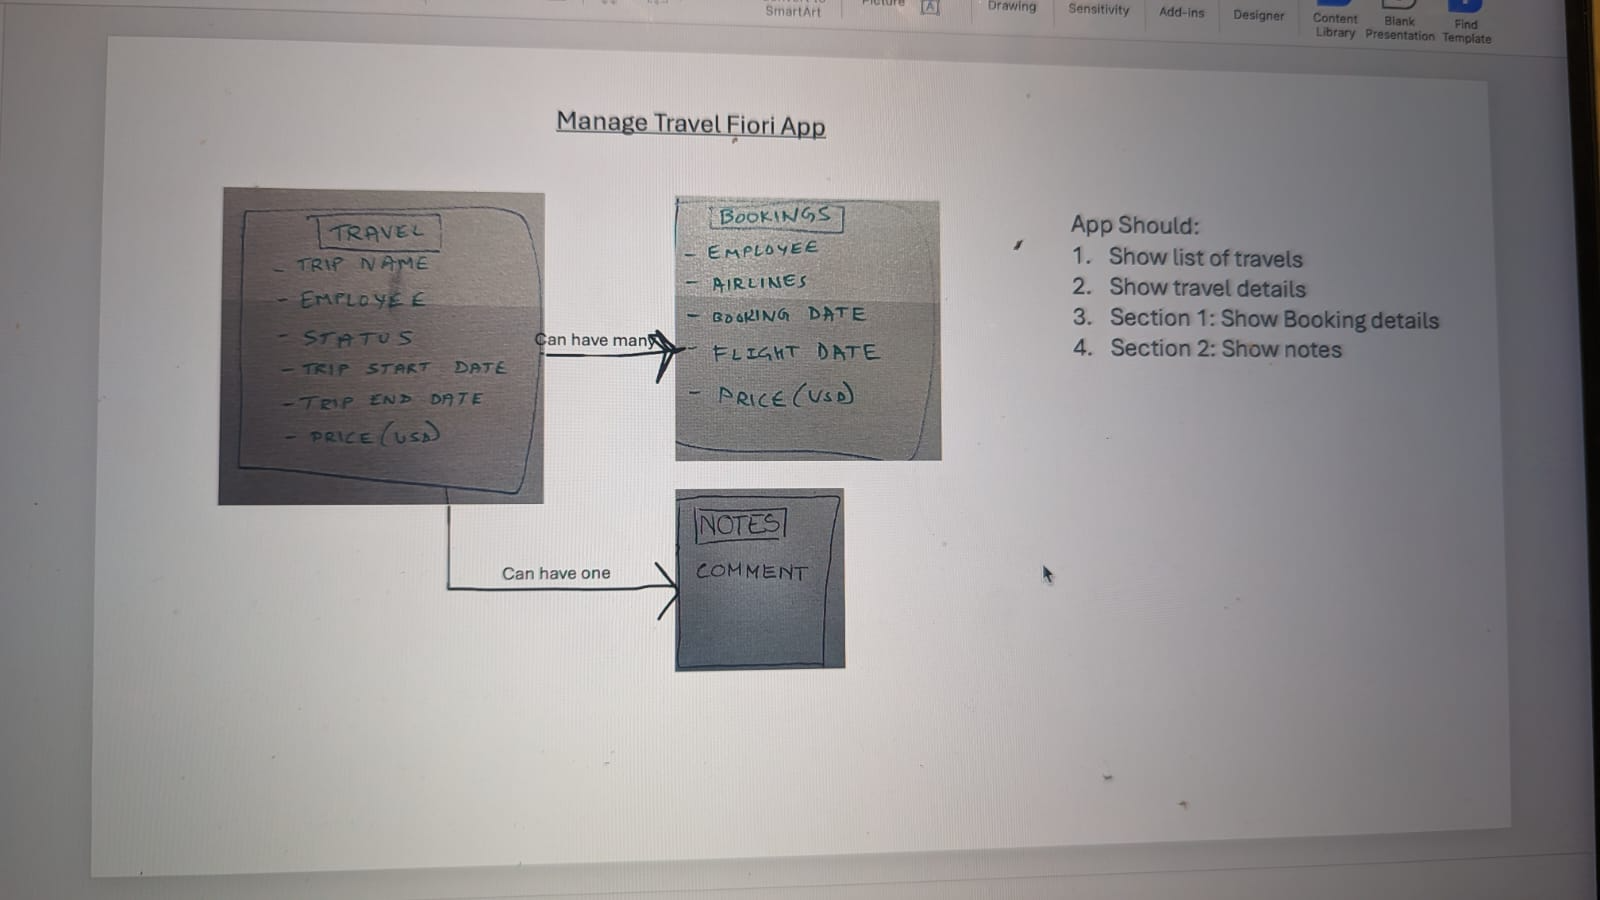 SmartArt
Drawing
Sensitivity
Add-ins
Designer
Content
Library
Blank
Presentation
Find
Template
Manage Travel Fiori App
TRAVEL
- TRIP NAME
- EMPLOYEE
- STATUS
- TRIP START DATE
- TRIP END DATE
- PRICE (USD)
Can have many
BOOKINGS
- EMPLOYEE
- AIRLINES
- BOOKING DATE
- FLIGHT DATE
- PRICE (USD)
Can have one
NOTES
COMMENT
App Should:
1. Show list of travels
2. Show travel details
3. Section 1: Show Booking details
4. Section 2: Show notes